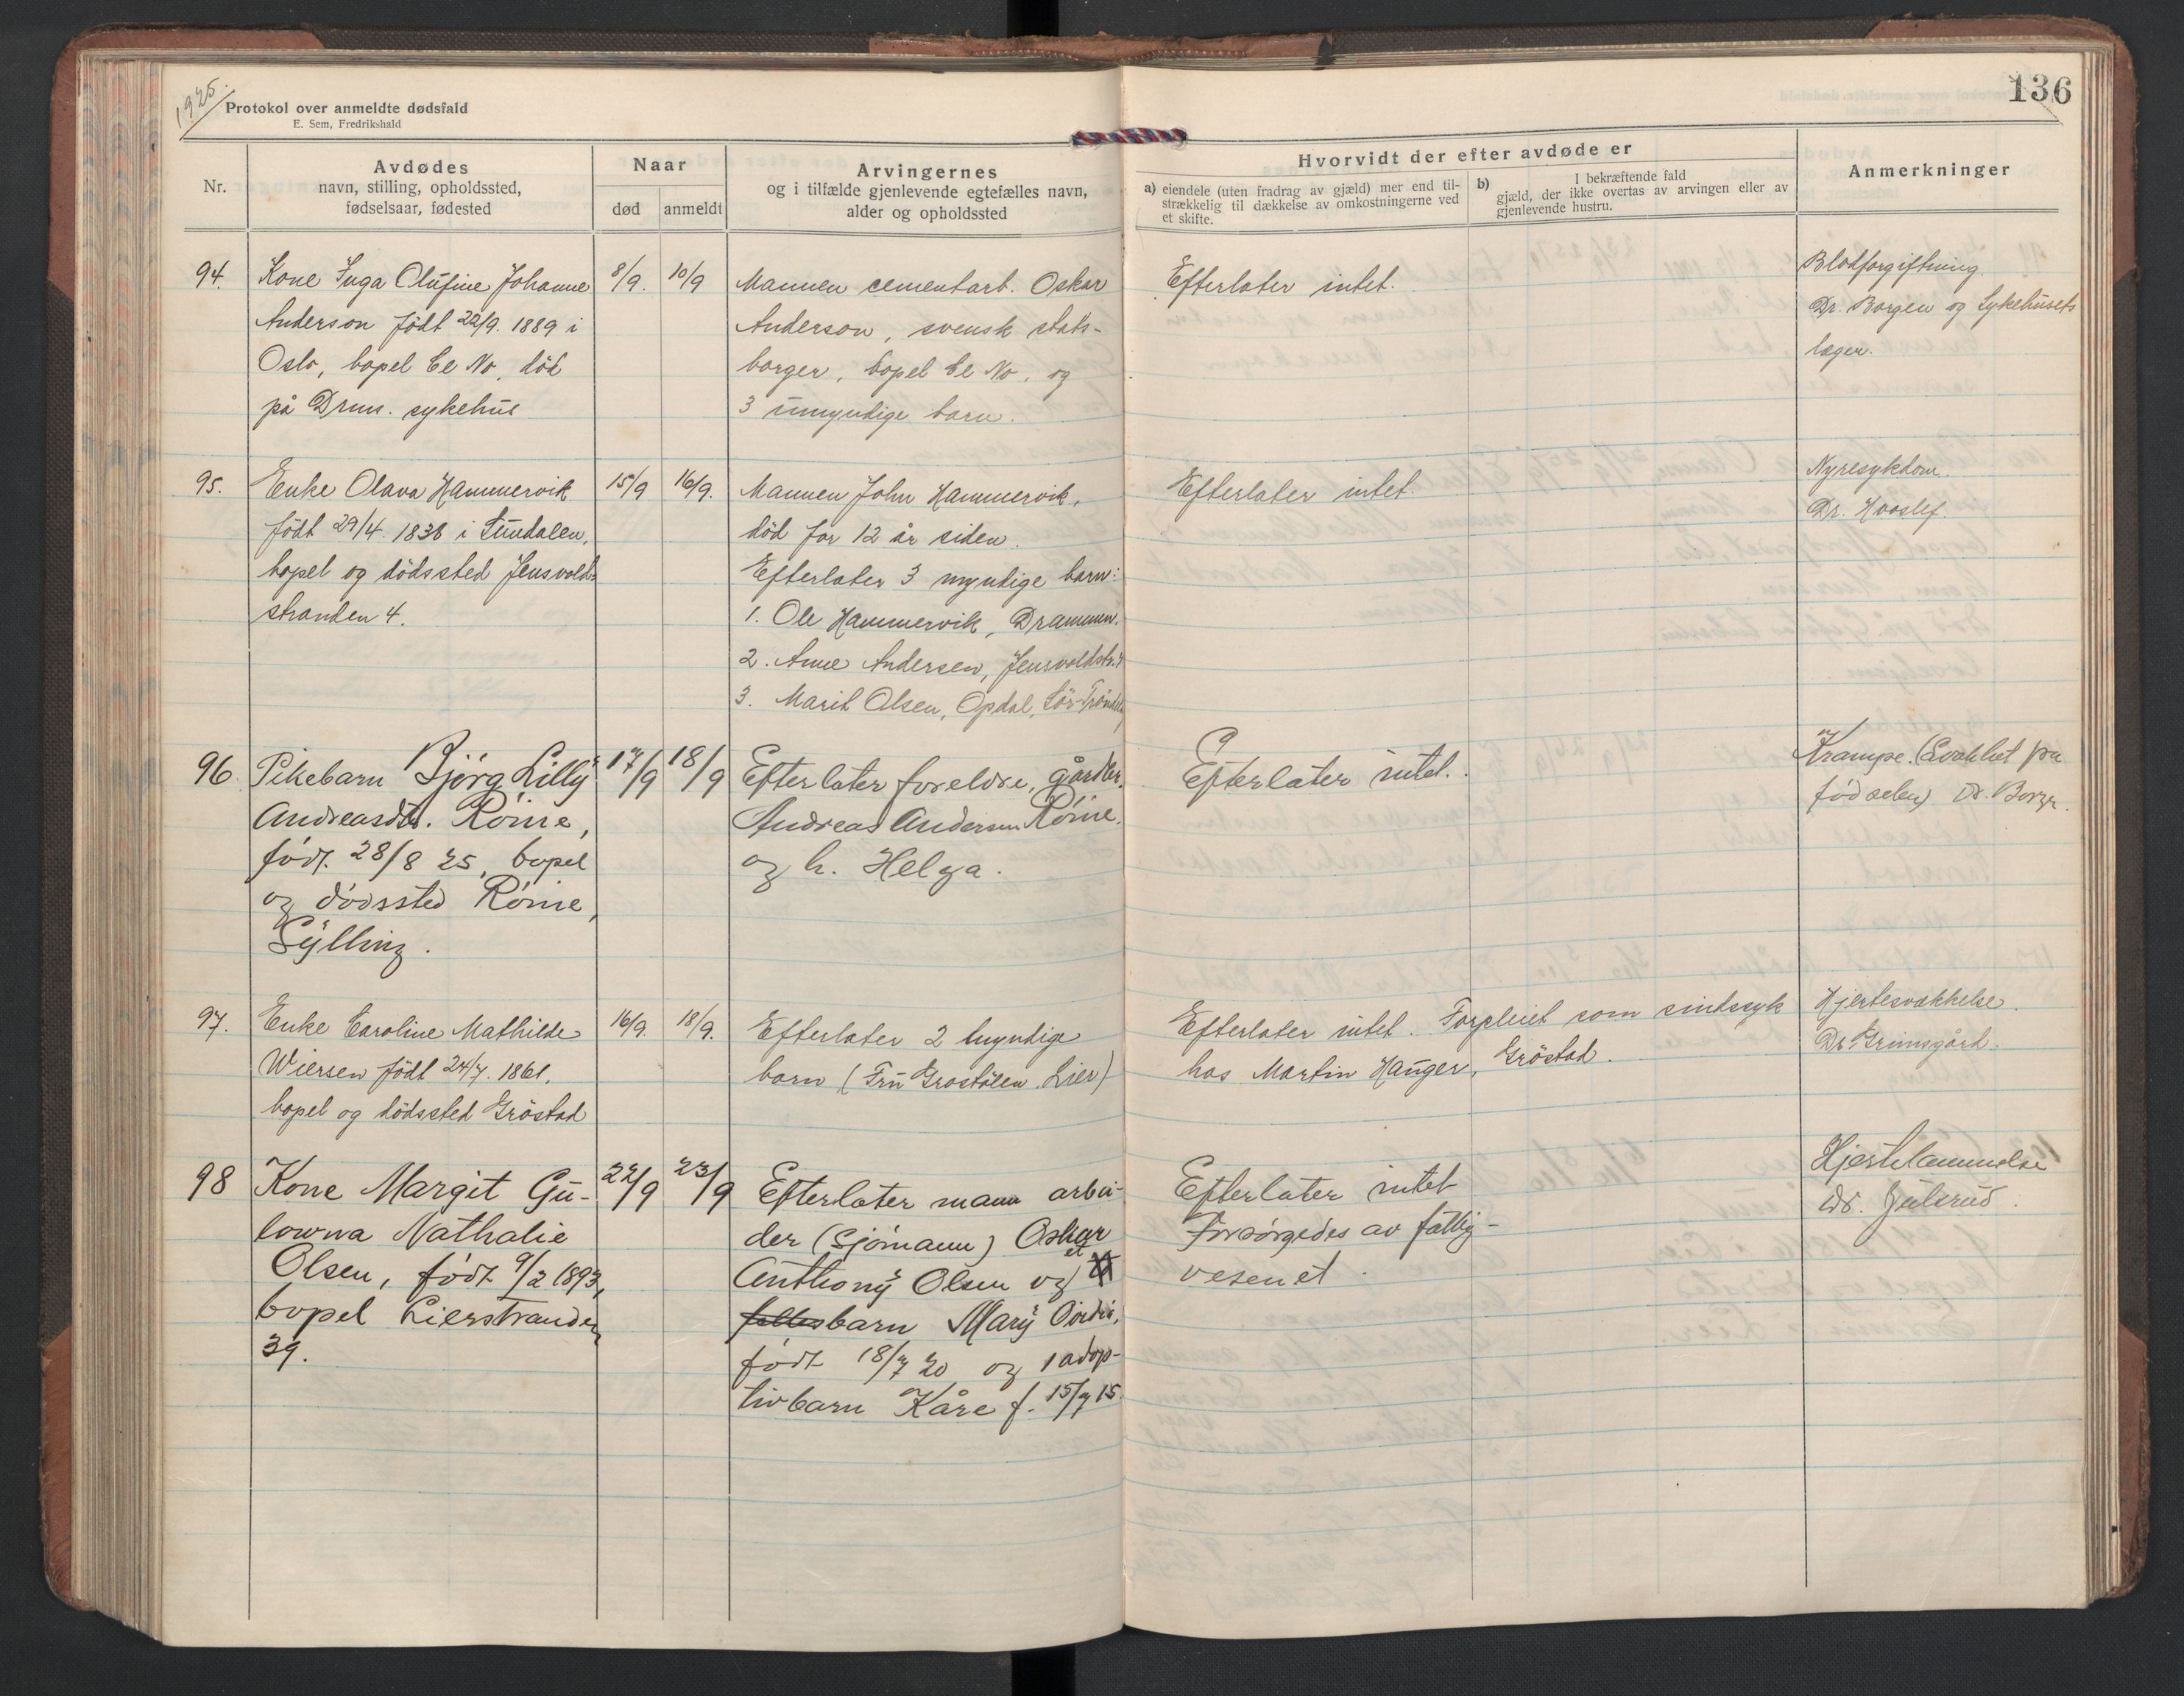 1925.
Protokol over anmeldte dødsfald
E. Sem, Fredrikshald
136
Nr.
Avdødes
navn, stilling, opholdssted,
fødselsaar, fødested
Naar
død
anmeldt
Arvingernes
og i tilfælde gjenlevende egtefælles navn,
alder og opholdssted
Hvorvidt der efter avdøde er
a) eiendele (uten fradrag av gjæld) mer end til-
strækkelig til dækkelse av omkostningerne ved
et skifte.
b) I bekræftende fald
gjæld, der ikke overtas av arvingen eller av
gjenlevende hustru.
Anmerkninger
94.
Kone Inga Olufine Johanne
Anderson født 22/9. 1889 i
Oslo, bopel Ce No, død
på Drms. sykehus
8/9.
10/9
Mannen cementarb. Oskar
Anderson, svensk stats-
borger, bopel Ce No, og
3 umyndige barn.
Efterlater intet.
Blodforgiftning.
Dr. Borgen og Sykehusets
læger.
95.
Enke Olava Hammervik
født 29/4. 1838 i Sundalen,
bopel og dødssted Jensvold-
stranden 4.
15/9
16/9.
Mannen John Hammervik,
død for 12 år siden.
Efterlater 3 myndige barn:
1. Ole Hammervik, Drammen.
2. Anne Andersen, Jensvoldstr. 4
3. Marit Olsen, Opdal, Sør-Trøndela
Efterlater intet.
Nyresykdom.
Dr. Hvoslef.
96
Pikebarn Bjørg Lilly
Andreasdtr. Røine,
født. 28/8 25, bopel
og dødssted Røine,
Sylling.
17/9
18/9
Efterlater foreldre, gårdbr.
Andreas Andersen Røine.
og h. Helga.
Efterlater intet.
Krampe. (Svakhet fra
fødselen) Dr. Borgn.
97.
Enke Caroline Mathilde
Wiersen født 24/7. 1861,
bopel og dødssted Grøstad
16/9.
18/9.
Efterlater 2 myndige
barn (Fru Grostølen, Lier)
Efterlater intet. Forpleiet som sindssyk
hos Martin Hauger, Grøstad.
Hjertesvækkelse.
Dr. Grimsgård.
98
Kone Margit Gu-
lowna Nathalie
Olsen, født 9/2 1893,
bopel Lierstranden
39.
22/9
23/9
Efterlater mann arbei-
der (sjømann) Oskar
Anthony Olsen og et
fellesbarn Mary
født 18/7 20 og 1 adop-
tivbarn Kåre f. 15/7 15.
Efterlater intet
Forsørgedes av fattig-
vesenet.
Hjertelammelse
Dr. Julsrud.